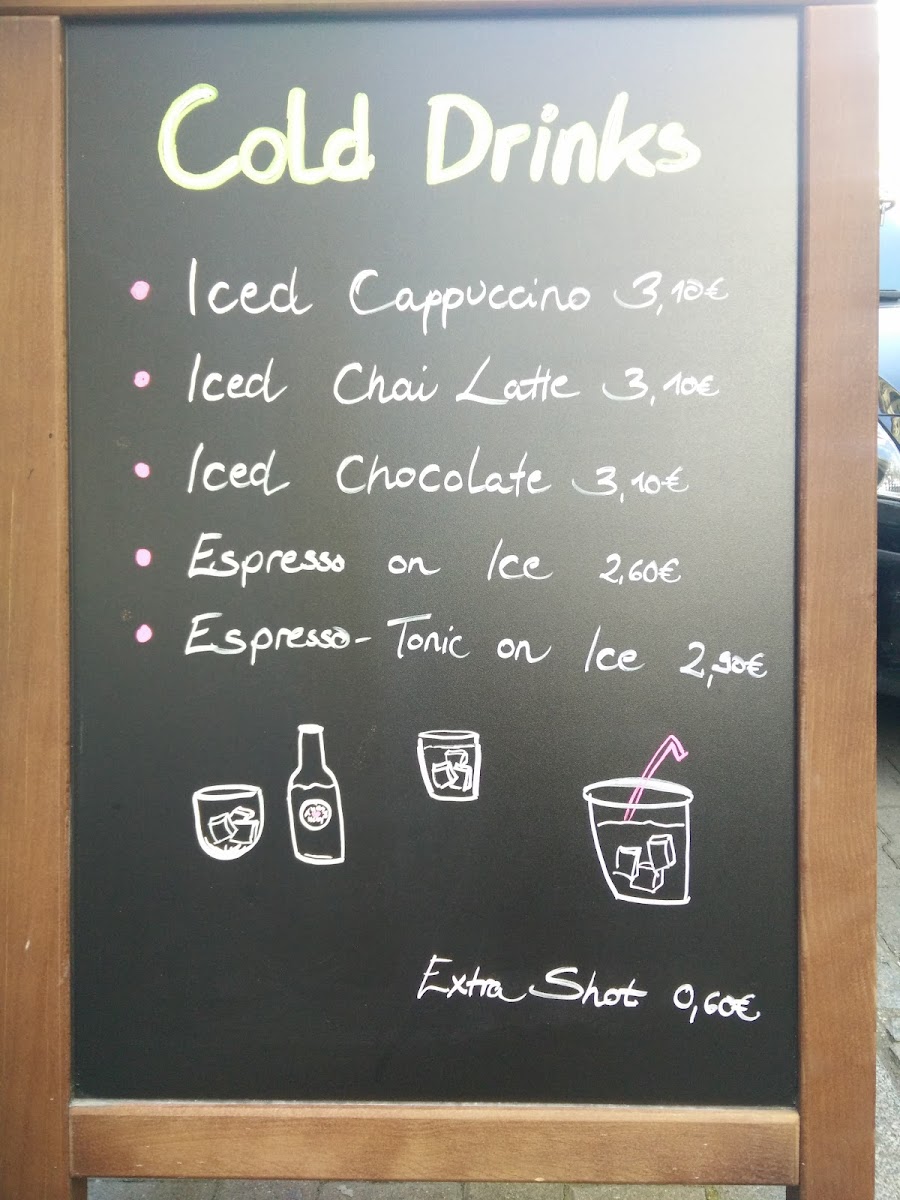 Cold Drinks
• Iced Cappuccino 3,10€
• Iced Chai Latte 3,10€
• Iced Chocolate 3,10€
• Espresso on Ice 2,60€
• Espresso-Tonic on Ice 2,90€
Extra Shot 0,60€